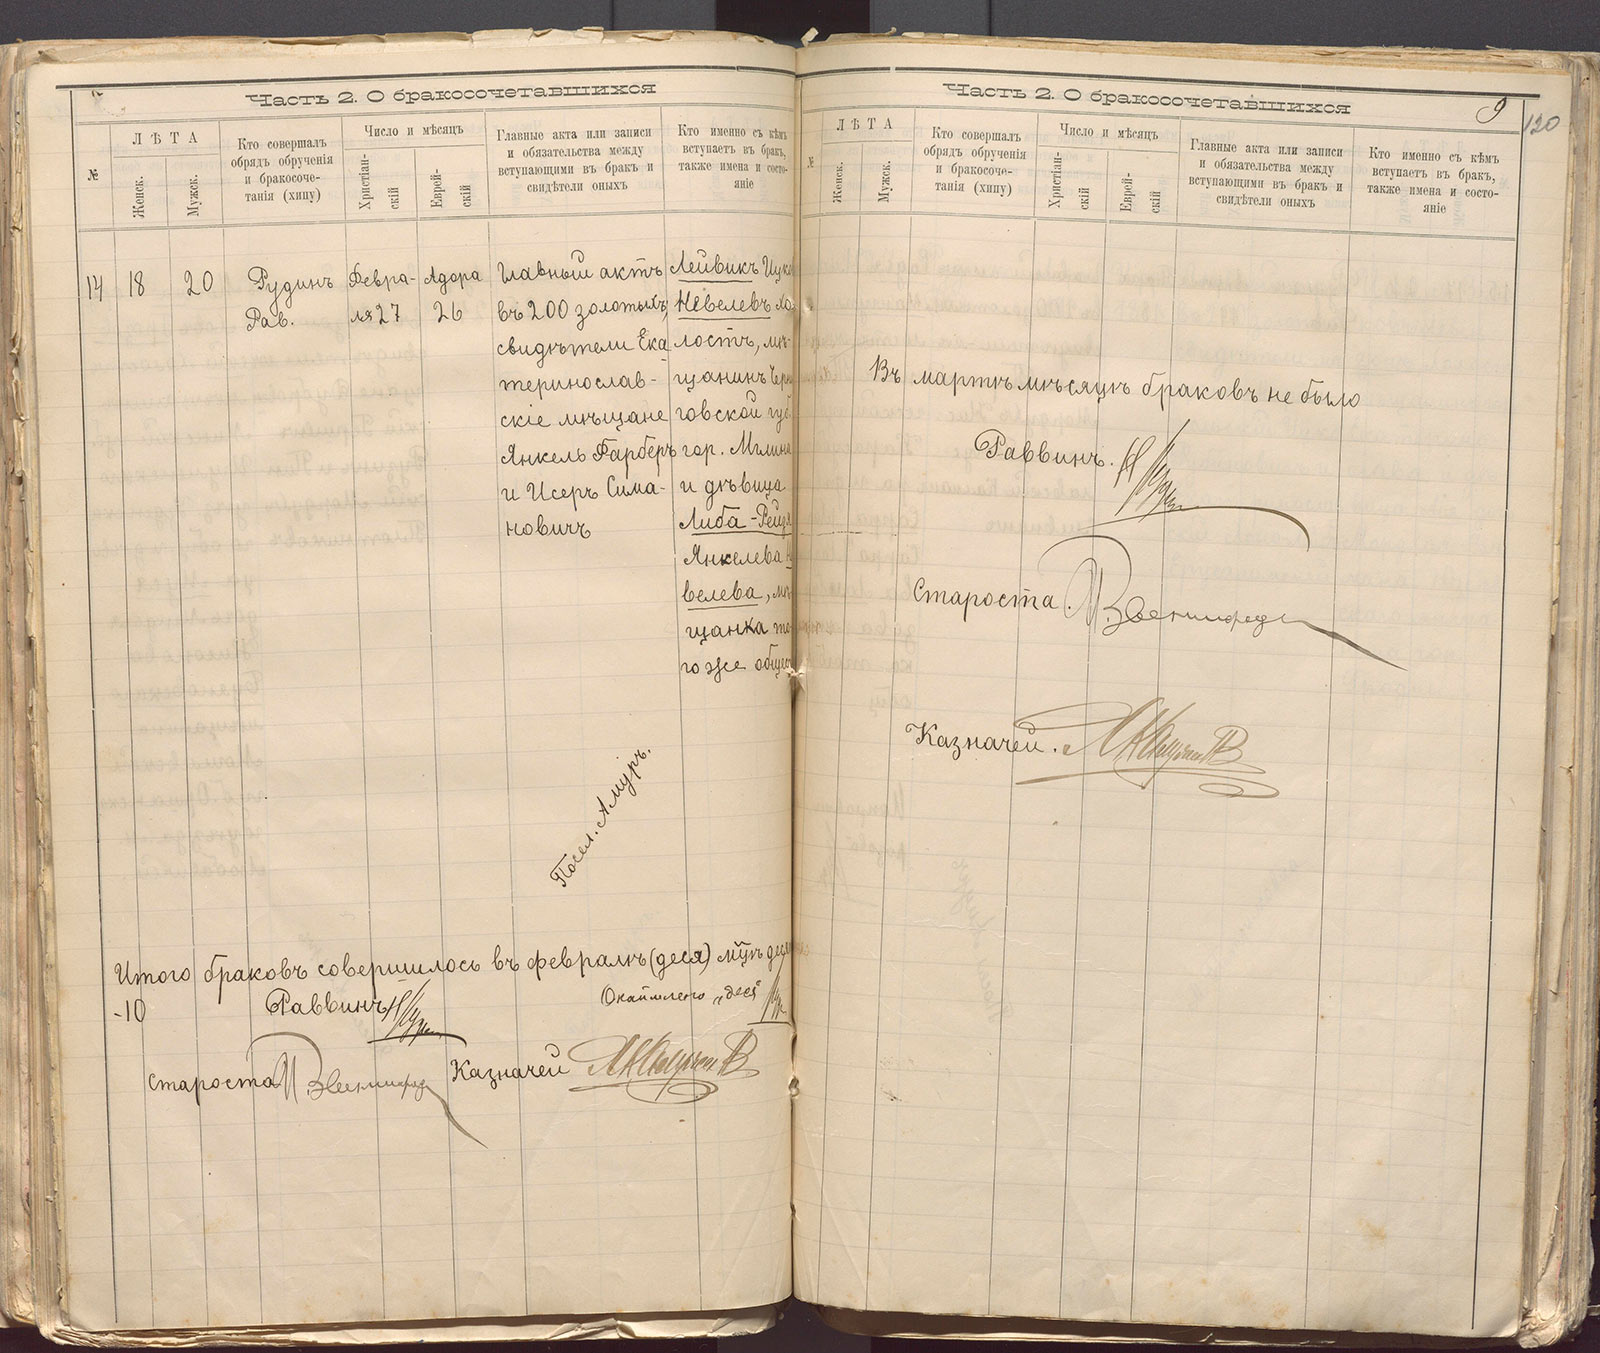 Часть 2. О бракосочетавшихся
№
ЛѢТА
Женск.
Мужск.
Кто совершалъ
обрядъ обрученія
и бракосоче-
танія (хипу)
Число и мѣсяцъ
Христіан-
скій
Еврей-
скій
Главные акта или записи
и обязательства между
вступающими въ бракъ и
свидѣтели оныхъ
Кто именно съ кѣмъ
вступаетъ въ бракъ,
также имена и состо-
яніе
14
18
20
Рудинъ
Рав.
Февра-
ля 27
Адара
26
Главный актъ
въ 200 золотыхъ,
свидѣтели Ека
теринослав-
скіе мѣщане
Янкель Фарберъ
и Исеръ Сима-
новичъ
Лейвикъ
Невелевъ хо
лостъ, мѣ-
щанинъ Черни
говской губ
гор. Мглина
и дѣвица
Либа-Рейзя
Янкелева Не
велева, мѣ
щанка то
го же общес
Посел. Амуръ.
Итого браковъ совершилось въ февралѣ (деся) м-цѣ
-10
Раввинъ
Окаймлено „деся"
Староста
Казначей
Часть 2. О бракосочетавшихся
9
120
№
ЛѢТА
Женск.
Мужск.
Кто совершалъ
обрядъ обрученія
и бракосоче-
танія (хипу)
Число и мѣсяцъ
Христіан-
скій
Еврей-
скій
Главные акта или записи
и обязательства между
вступающими въ бракъ и
свидѣтели оныхъ
Кто именно съ кѣмъ
вступаетъ въ бракъ,
также имена и состо-
яніе
Въ мартѣ мѣсяцѣ браковъ не было
Раввинъ.
Староста.
Казначей.